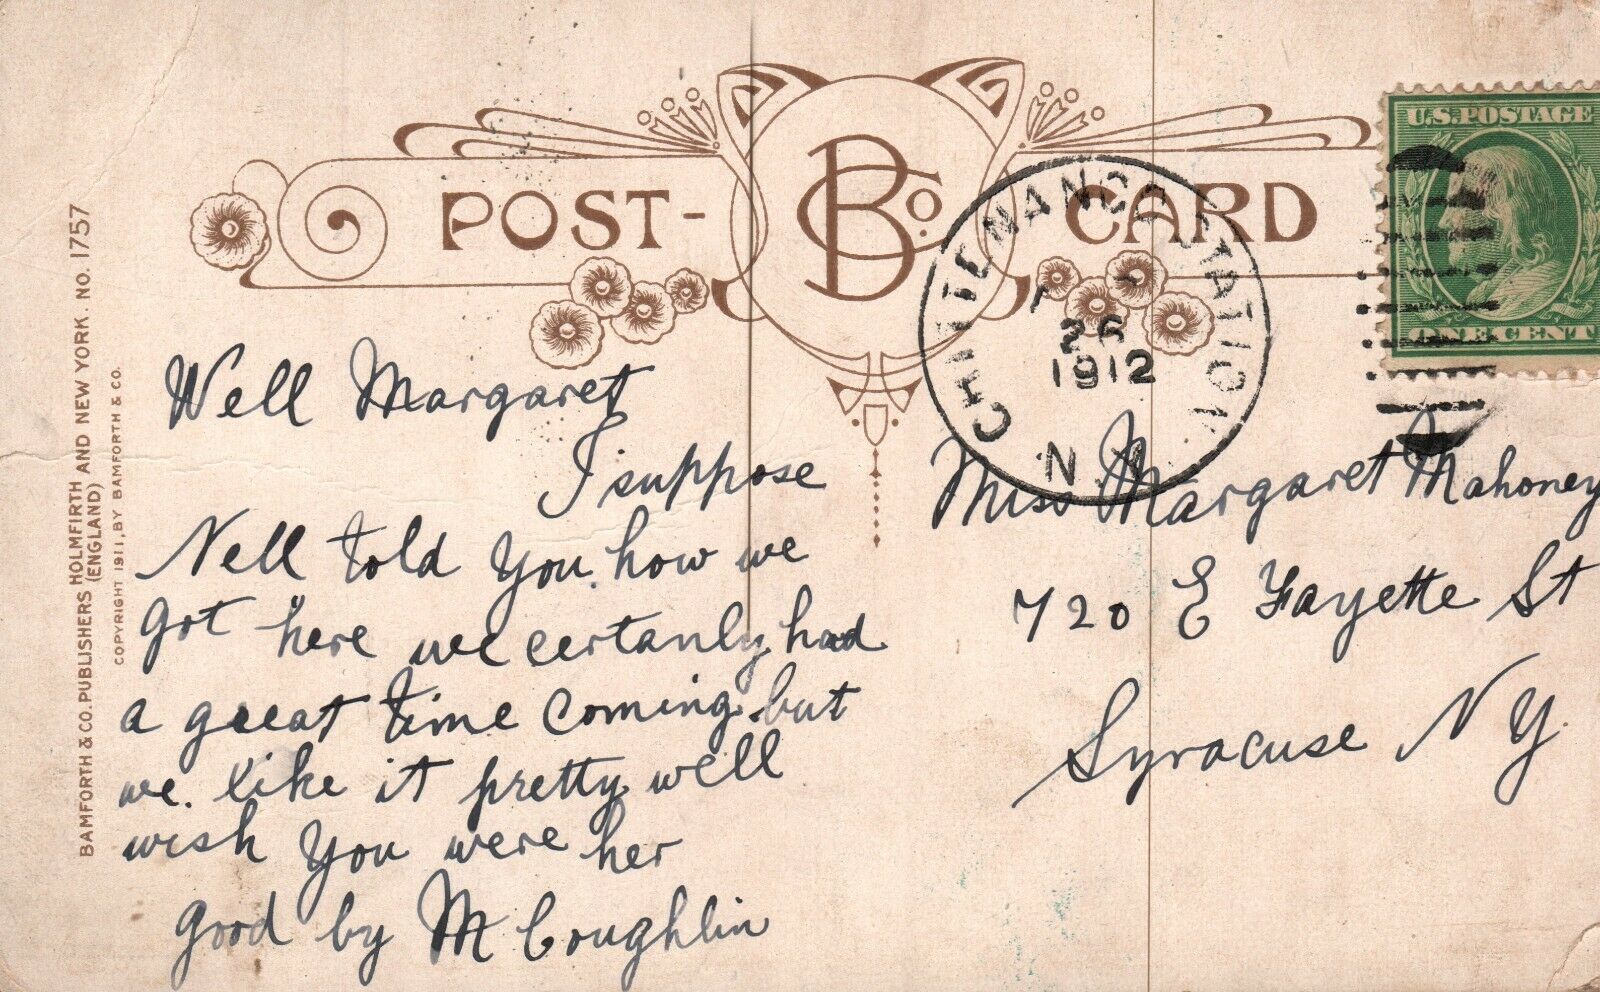 POST- BCo. CARD
U.S. POSTAGE
ONE CENT
CHITTENANGO STATION
26
1912
N.Y.
BAMFORTH & CO. PUBLISHERS HOLMFIRTH AND NEW YORK. NO. 1757
(ENGLAND)
COPYRIGHT 1911, BY BAMFORTH & CO.
Well Margaret
I suppose
Nell told You how we
got here we certanly had
a great time coming but
we. like it pretty well
wish You were her
good by M Coughlin
Miss Margaret Mahoney
720 E Fayette St
Syracuse N Y.